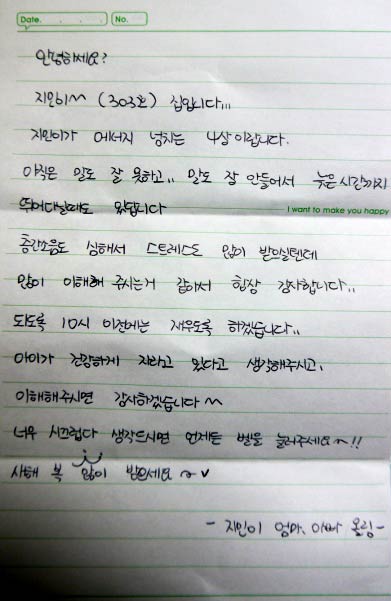 Date. . . . No.
안녕하세요?
지인이~ (303호) 집입니다...
지인이가 에너지 넘치는 4살이랍니다.
아직은 말도 잘 못하고.. 말도 잘 안들어서 늦은시간까지
뛰어다닐때도 있답니다
I want to make you happy
층간소음도 심해서 스트레스도 많이 받으실텐데
많이 이해해 주시는거 같아서 현장 감사합니다..
되도록 10시 이전에는 재우도록 하겠습니다..
아이가 건강하게 자라고 있다고 생각해주시고,
이해해주시면 감사하겠습니다~
너무 시끄럽다 생각드시면 언제든 벨을 눌러주세요~!!
새해 복 많이 받으세요~v
- 지인이 엄마, 아빠 올림-